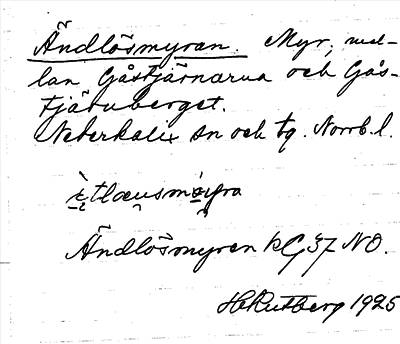 Ändlösmyran. Myr, mel-
lan Gåstjärnarna och Gås-
tjärnberget.
Nederkalix sn och tg. Norrb. l.
Ändlösmyren kG 37 NO.
H Rutberg 1925